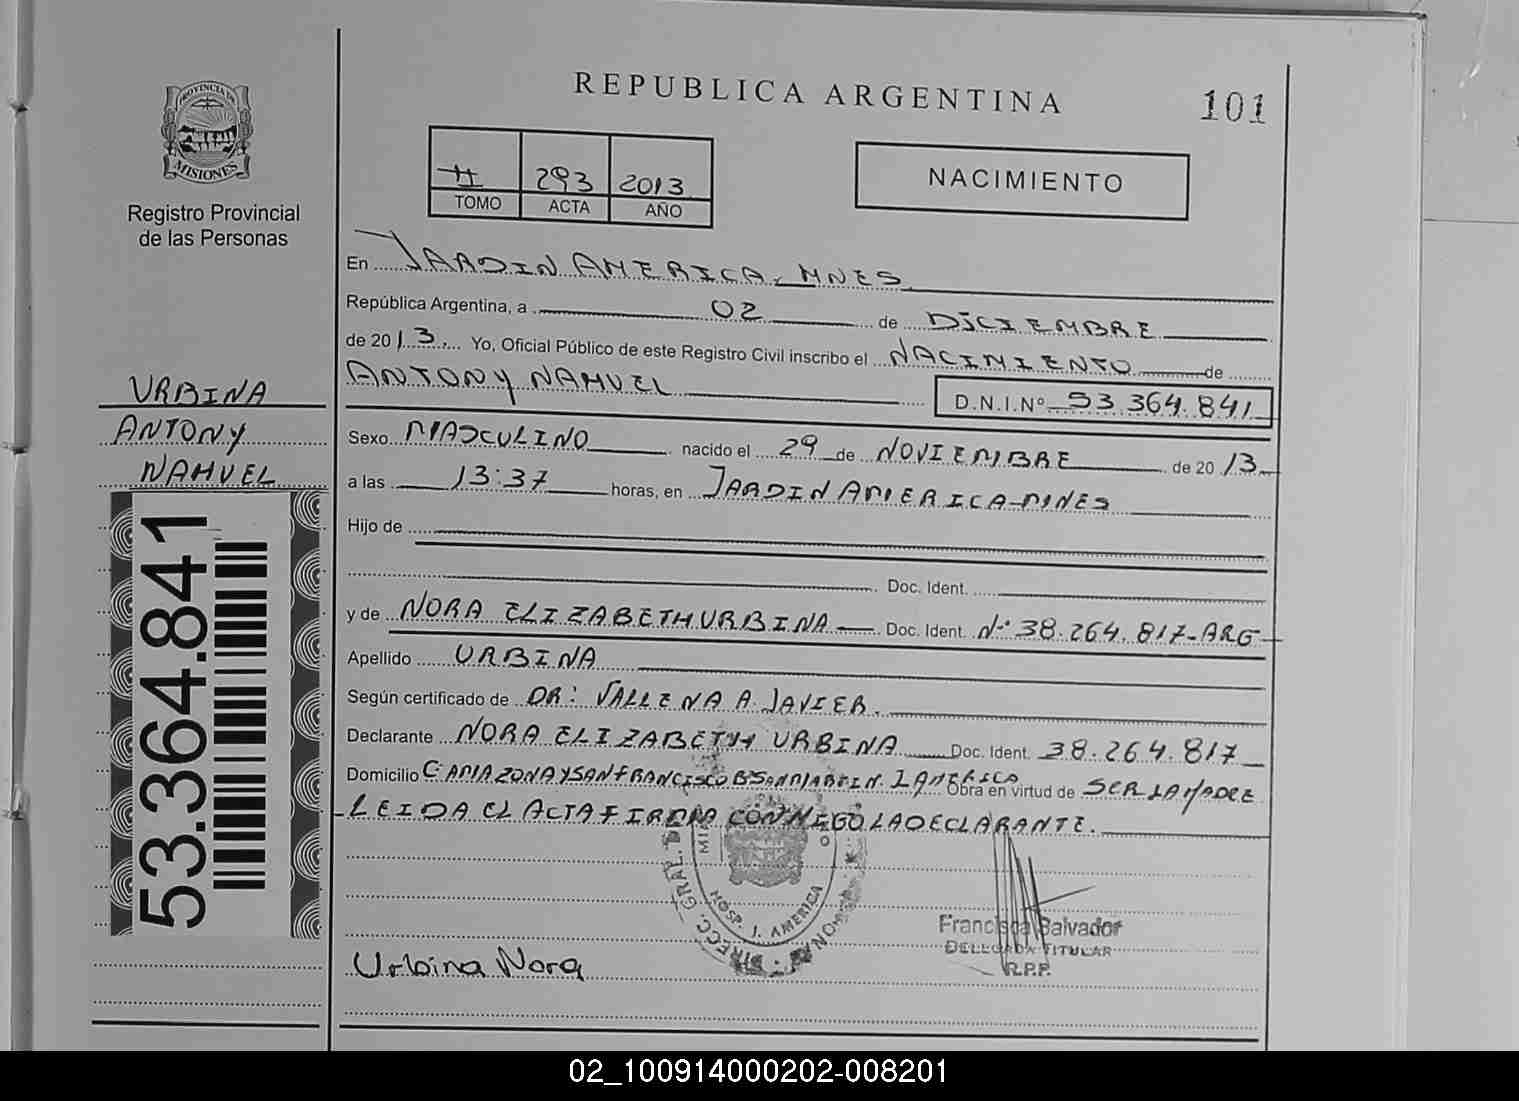 REPUBLICA ARGENTINA
101
PROVINCIA DE
MISIONES
Registro Provincial
de las Personas
II 293 2013
TOMO ACTA AÑO
NACIMIENTO
En JARDIN AMERICA, MNES
República Argentina, a 02 de DICIEMBRE
de 2013. Yo, Oficial Público de este Registro Civil inscribo el NACIMIENTO de
ANTONY NAHUEL D.N.I.Nº 53 364.841
URBINA
ANTONY
NAHUEL
53.364.841
Sexo MASCULINO nacido el 29 de NOVIEMBRE de 2013
a las 13:37 horas, en JARDIN AMERICA-MNES
Hijo de
Doc. Ident.
y de NORA ELIZABETH URBINA Doc. Ident. Nº 38.264.817-ARG
Apellido URBINA
Según certificado de DR: VALLENA A. JAVIER.
Declarante NORA ELIZABETH URBINA Doc. Ident. 38.264.817
Domicilio C AMAZONA Y SAN FRANCISCO Bº SAN MARTIN. J AMERICA Obra en virtud de SER LA MADRE
LEIDA EL ACTA FIRMA CONMIGO LA DECLARANTE.
DIRECC. GRAL. D
HOSP. J. AMERICA
Francisca Salvador
DELEGADA TITULAR
R.P.P.
Urbina Nora
02_100914000202-008201